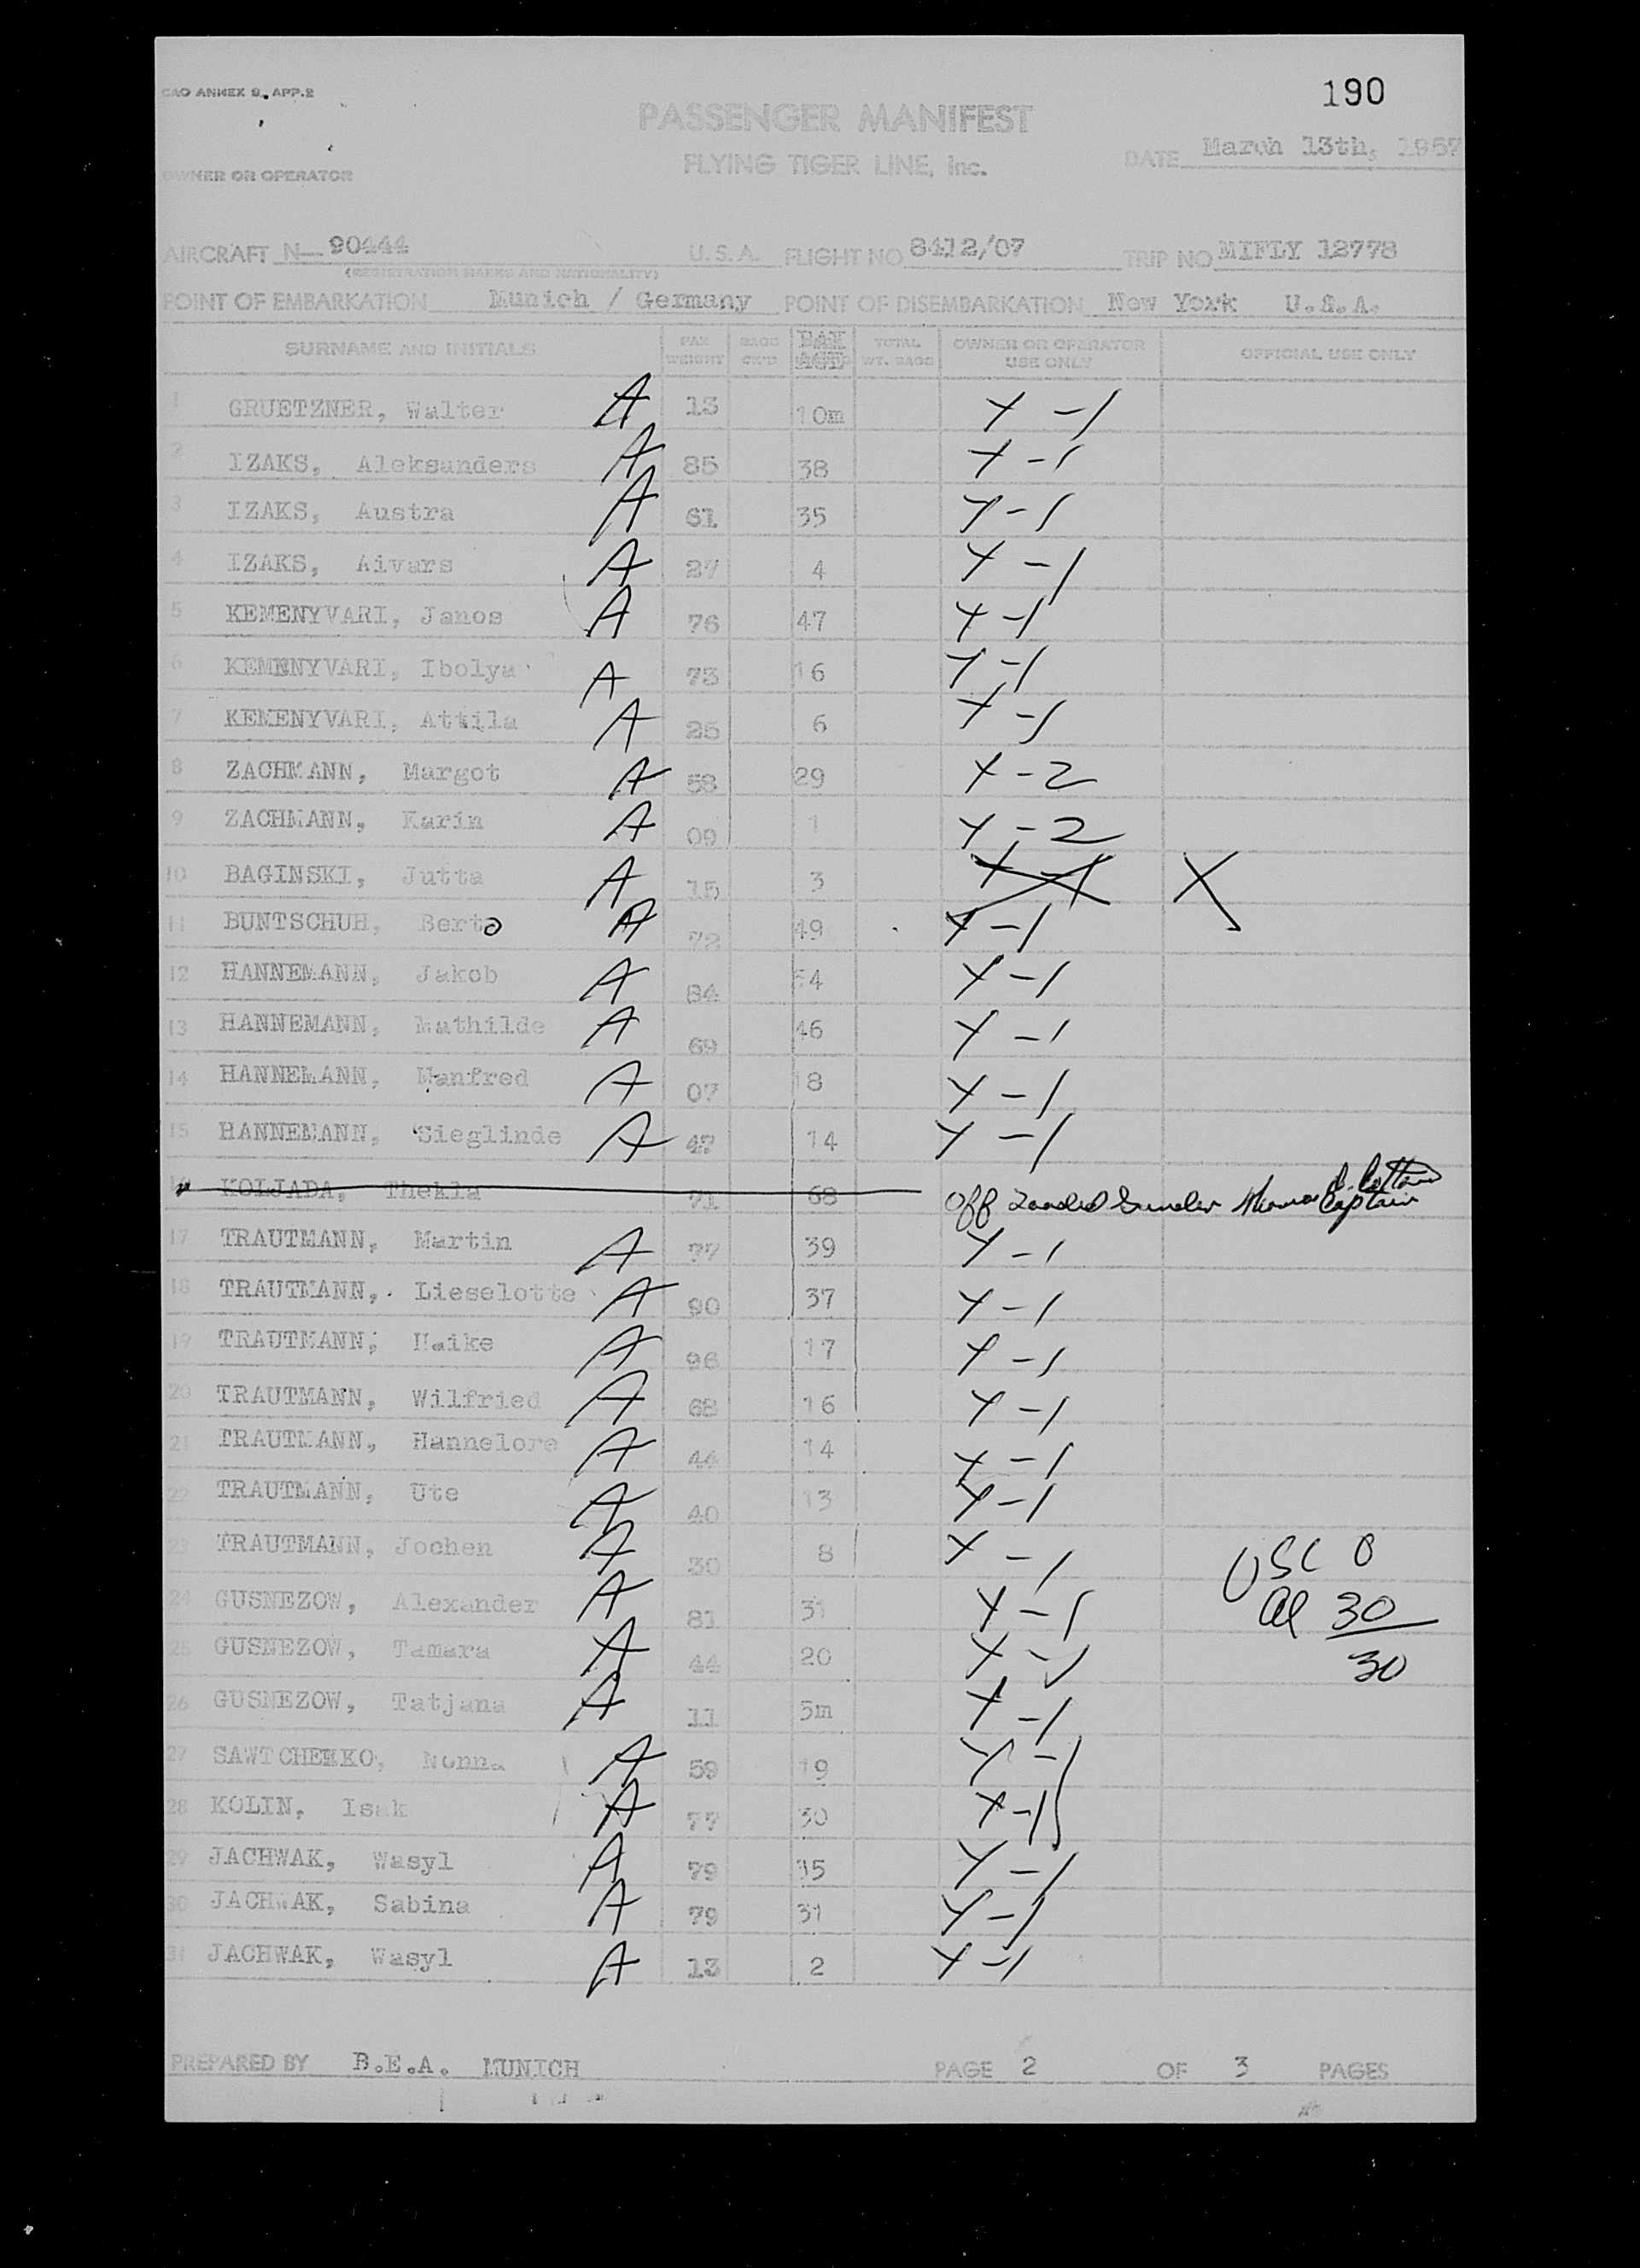 190
CAO ANNEX 9, APP.2
PASSENGER MANIFEST
DATE March 13th, 1957
FLYING TIGER LINE, Inc.
OWNER OR OPERATOR
AIRCRAFT N- 90444 U.S.A. FLIGHT NO 8412/07 TRIP NO MIFLY 12778
(REGISTRATION MARKS AND NATIONALITY)
POINT OF EMBARKATION Munich / Germany POINT OF DISEMBARKATION New York U.S.A.
SURNAME AND INITIALS PAX WEIGHT BAGG CK'D PAX AGE TOTAL WT. BAGG OWNER OR OPERATOR USE ONLY OFFICIAL USE ONLY
1 GRUETZNER, Walter A 13 10m Y-1
2 IZAKS, Aleksanders A 85 38 Y-1
3 IZAKS, Austra A 61 35 Y-1
4 IZAKS, Aivars A 27 4 Y-1
5 KEMENYVARI, Janos A 76 47 Y-1
6 KEMENYVARI, Ibolya A 73 16 Y-1
7 KEMENYVARI, Attila A 25 6 Y-1
8 ZACHMANN, Margot A 58 29 Y-2
9 ZACHMANN, Karin A 09 1 Y-2
10 BAGINSKI, Jutta A 15 3 X
11 BUNTSCHUH, Berto A 72 49 Y-1
12 HANNEMANN, Jakob A 84 54 Y-1
13 HANNEMANN, Mathilde A 69 46 Y-1
14 HANNEMANN, Manfred A 07 18 Y-1
15 HANNEMANN, Sieglinde A 47 14 Y-1
16 KOLJADA, Thekla 71 68 Off Loaded Gander Captain
17 TRAUTMANN, Martin A 77 39 Y-1
18 TRAUTMANN, Lieselotte A 90 37 Y-1
19 TRAUTMANN, Haike A 96 17 Y-1
20 TRAUTMANN, Wilfried A 68 16 Y-1
21 TRAUTMANN, Hannelore A 44 14 Y-1
22 TRAUTMANN, Ute A 40 13 Y-1
23 TRAUTMANN, Jochen A 30 8 Y-1
USC 0
24 GUSNEZOW, Alexander A 81 31 Y-1
al 30
25 GUSNEZOW, Tamara A 44 20 Y-1
30
26 GUSNEZOW, Tatjana A 11 5m Y-1
27 SAWTCHENKO, Nonna A 59 19 Y-1
28 KOLIN, Isak A 77 30 Y-1
29 JACHWAK, Wasyl A 79 35 Y-1
30 JACHWAK, Sabina A 79 31 Y-1
31 JACHWAK, Wasyl A 13 2 Y-1
PREPARED BY B.E.A. MUNICH PAGE 2 OF 3 PAGES